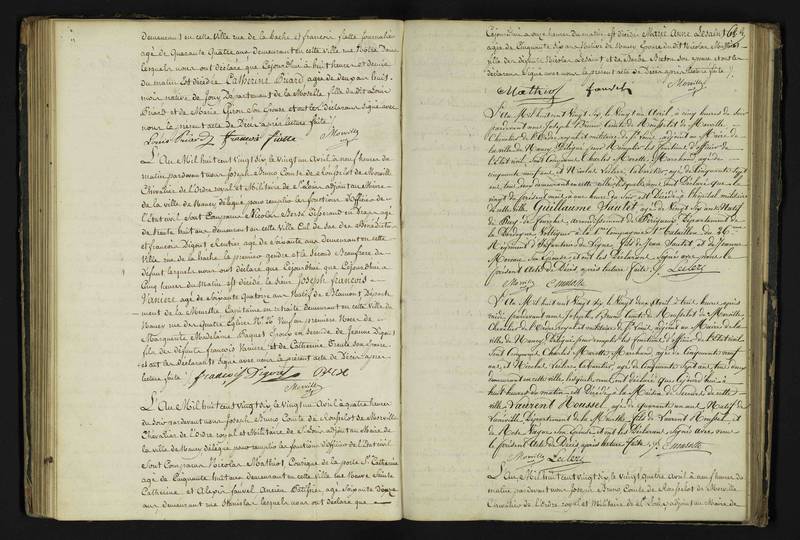 demeurant en cette Ville rue de la hache et françois fiatte Journalier
agé de Quarante Quatre ans demeurant en cette Ville rue Notre Dame
lesquels nous ont déclaré que cejourd'hui à huit heures et demie
du matin Est décédée Catherine Briard agée de deux
native de Jouy Département de la Moselle fille du dit Louis
Briard et de Marie Giron Son Epouse et ont les déclarans Signé avec
nous le présent acte de Décès après lecture faite
françois fiatte Morville
L'An Mil huit cent Vingt Six le vingt un Avril à neuf heures du
matin pardevant nous Joseph Bruno Comte de Rousselot de Morville
Chevalier de l'Ordre royal et Militaire de St Louis adjoint au Maire
de la Ville de Nancy délégué pour remplir les fonctions d'Officier de
l'Etat civil Sont Comparus Nicolas Tisserand en agé
de trente huit ans demeurant en cette Ville Cul de Sac des Bénédictins
et françois Digout Rentier agé de soixante ans demeurant en cette
Ville rue de la hache le premier gendre et le Second Beaufrere du
défunt lesquels nous ont déclaré que Cejourd'hui à
Cinq heures du matin est décédé le Sieur Joseph françois
Vaniere agé de Soixante Quatorze ans Natif de Blamont Départe
ment de la Meurthe Capitaine en retraite demeurant en cette Ville de
Nancy rue des Quatre Eglises Veuf en premiere Noces de
Marguerite Madelaine Paquet Epoux en Seconde de Jeanne Digout
fils de défunts françois Vaniere et de Catherine Son Epouse
et ont les déclarans Signé avec nous le présent acte de Décès après
lecture faite françois Digout
Morville
L'An Mil huit cent Vingt Six le vingt un Avril à quatre heures
du Soir pardevant nous Joseph Bruno Comte de Rousselot de Morville
Chevalier de l'Ordre royal et Militaire de St Louis adjoint au Maire de
la Ville de Nancy délégué pour remplir les fonctions d'Officier de l'Etat civil
Sont Comparus Nicolas Mathiot Consigne de la porte Ste Catherine
agé de Cinquante huit ans demeurant en cette Ville rue Neuve Sainte
Catherine et Alexis fauvel Ancien agé Soixante Douze
ans demeurant rue Stanislas lesquels nous ont déclaré que
Cejourd'hui à onze heures du matin est décédée Marie Anne Lesaint
agée de Cinquante Six ans Native de Nancy Epouse du dit Nicolas Mathiot
fille des défunts Nicolas Lesaint et de Barbe Breton Son Epouse et ont les
déclarans Signé avec nous le présent acte de Décès après lecture faite
Mathiot fauvel Morville
L'An Mil huit cent Vingt Six, le Vingt un Avril, à cinq heures du Soir
pardevant nous Joseph Bruno Comte de Rousselot de Morville
Chevalier de l'Ordre royal et militaire de St Louis, adjoint au Maire de
la ville de Nancy, délégué pour remplir les fonctions d'officier de
l'Etat civil, sont Comparus Charles Marotte Marchand, agé de
cinquante neuf ans, et Nicolas Leclerc, Cabaretier, agé de Cinquante Sept
ans, tous deux demeurant en cette ville, lesquels nous ont déclaré que le
vingt du présent mois, à une heure du Soir, est Décédé à l'hôpital militaire
de cette Ville Guillaume Sautet agé de Vingt Six ans, Natif
de arrondissement de Périgueux, département de
la Dordogne, Voltigeur à la Compagnie 1er bataillon du 26me
Régiment d'Infanterie de Ligne, fils de Jean Sautet et de Jeanne
Moreau Son Epouse, et ont les Déclarans Signé avec nous le
présent Acte de Décès après lecture faite. Leclerc
Morville Cmarotte
L'An Mil huit cent Vingt Six, le Vingt deux Avril, à trois heures après
midi, pardevant nous Joseph Bruno Comte de Rousselot de Morville
Chevalier de l'Ordre royal et militaire de St Louis, adjoint au Maire de la
ville de Nancy, Délégué pour remplir les fonctions d'officier de l'Etat civil,
sont Comparus Charles Marotte, Marchand, agé de cinquante neuf
ans, et Nicolas Leclerc, Cabaretier, agé de Cinquante Sept ans, tous deux
demeurant en cette ville, lesquels nous ont déclaré que Cejourd'hui à
huit heures du matin est Décédé à la Maison de Secours de cette
ville, Laurent Houssel, agé de quarante un ans, Natif de
Département de la Meurthe, fils de Laurent Houssel et
de Rose Son Epouse, et ont les Déclarans Signé avec nous
le présent Acte de Décès après lecture faite. Cmarotte
Morville Leclerc
L'An Mil huit cent Vingt Six, le vingt quatre Avril à neuf heures du
matin pardevant nous Joseph Bruno Comte de Rousselot de Morville
Chevalier de l'Ordre royal et Militaire de St Louis adjoint au Maire de